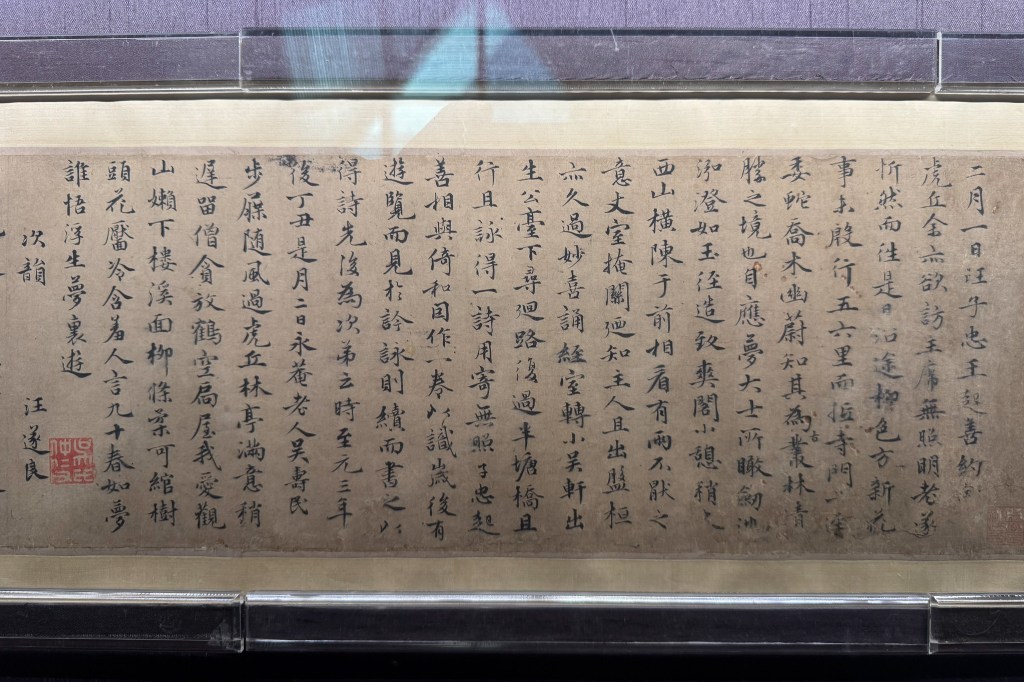 二月一日汪子忠王起善約余
虎丘余亦欲訪主席無照明老遂
忻然而往是日沿途柳色方新花
事未殷行五六里而抵寺門
委蛇喬木幽蔚知其為古叢林清
勝之境也自應夢大士所瞰劒池
泓澄如玉徑造致爽閣小憩稍
西山橫陳于前相看有兩不厭之
意丈室掩關廼知主人且出盤桓
亦久過妙喜誦經室轉小吳軒出
生公臺下尋廻路復過半塘橋且
行且詠得一詩用寄無照子忠起
善相與倚和因作一卷以識歲後有
遊覽而見於詮詠則續而書之以
得詩先後為次第云時至元三年
後丁丑是月二日永菴老人吳壽民
步屧随風過虎丘林亭滿意稍
遲留僧貪放鶴空扃屋我愛觀
山嬾下樓溪面柳條柔可綰樹
頭花靨冷含羞人言九十春如夢
誰悟浮生夢裏遊
次韻 汪遂良